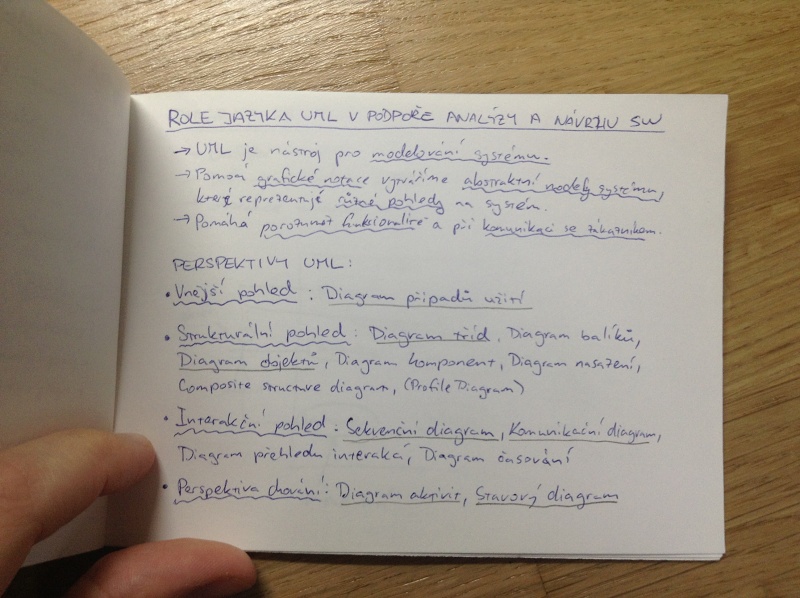 ROLE JAZYKA UML V PODPOŘE ANALÝZY A NÁVRHU SW
→ UML je nástroj pro modelování systému.
→ Pomocí grafické notace vytváříme abstraktní modely systému,
které reprezentují různé pohledy na systém.
→ Pomáhá porozumět funkcionalitě a při komunikaci se zákazníkem.
PERSPEKTIVY UML:
• Vnější pohled : Diagram případů užití
• Strukturální pohled : Diagram tříd, Diagram balíků,
Diagram objektů, Diagram komponent, Diagram nasazení,
Composite structure diagram, (Profile Diagram)
• Interakční pohled : Sekvenční diagram, Komunikační diagram,
Diagram přehledu interakcí, Diagram časování
• Perspektiva chování: Diagram aktivit, Stavový diagram